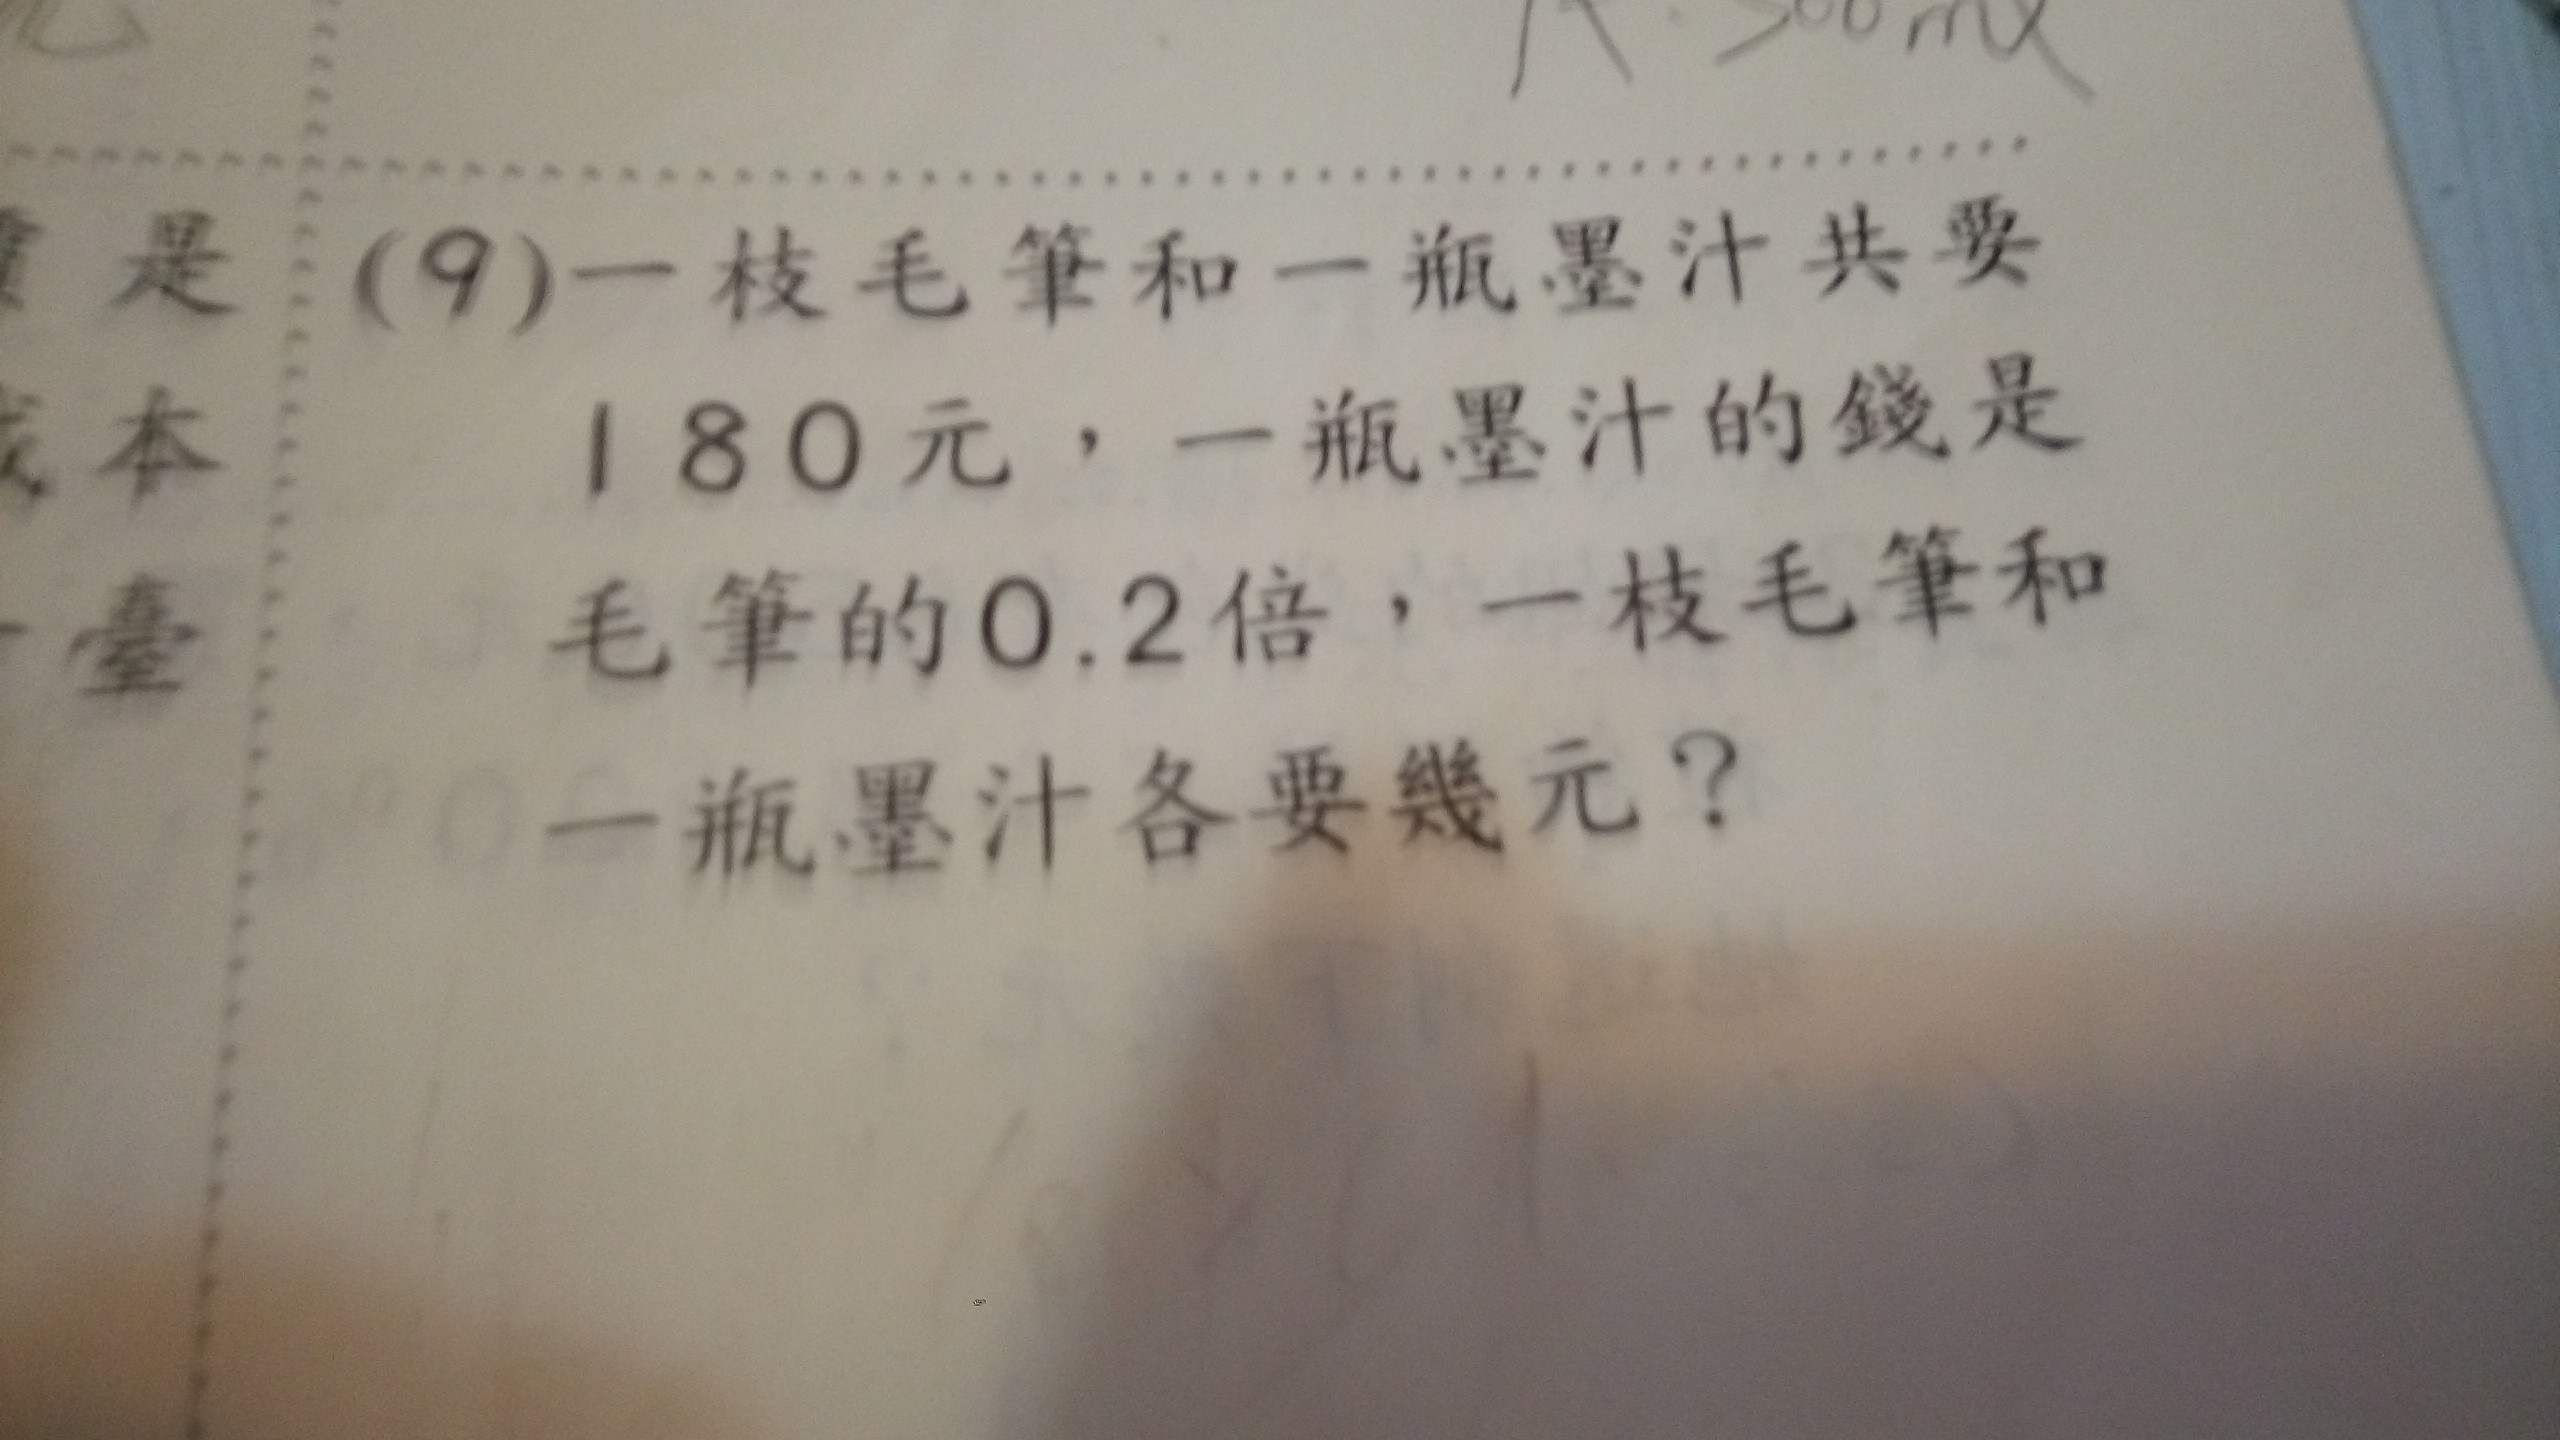 500ml
是
(9)一枝毛筆和一瓶墨汁共要
本
180元,一瓶墨汁的錢是
臺
毛筆的0.2倍,一枝毛筆和
一瓶墨汁各要幾元?